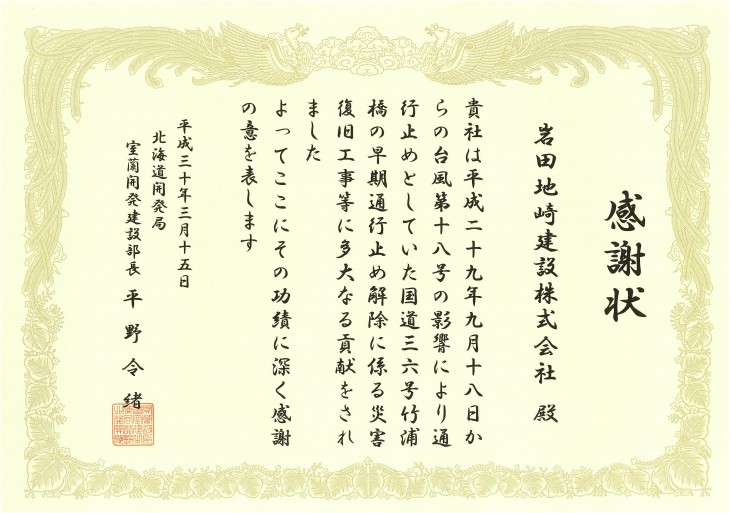 感謝状
岩田地崎建設株式会社 殿
貴社は平成二十九年九月十八日か
らの台風第十八号の影響により通
行止めとしていた国道三六号竹浦
橋の早期通行止め解除に係る災害
復旧工事等に多大なる貢献をされ
ました
よってここにその功績に深く感謝
の意を表します
平成三十年三月十五日
北海道開発局
室蘭開発建設部長 平野令緒